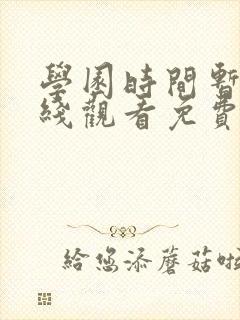 學園時間暫
綫觀看免費
給您添蘑菇啦